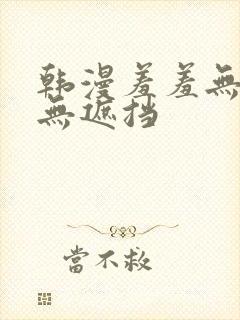 韩漫羞羞無
無遮挡
當不救